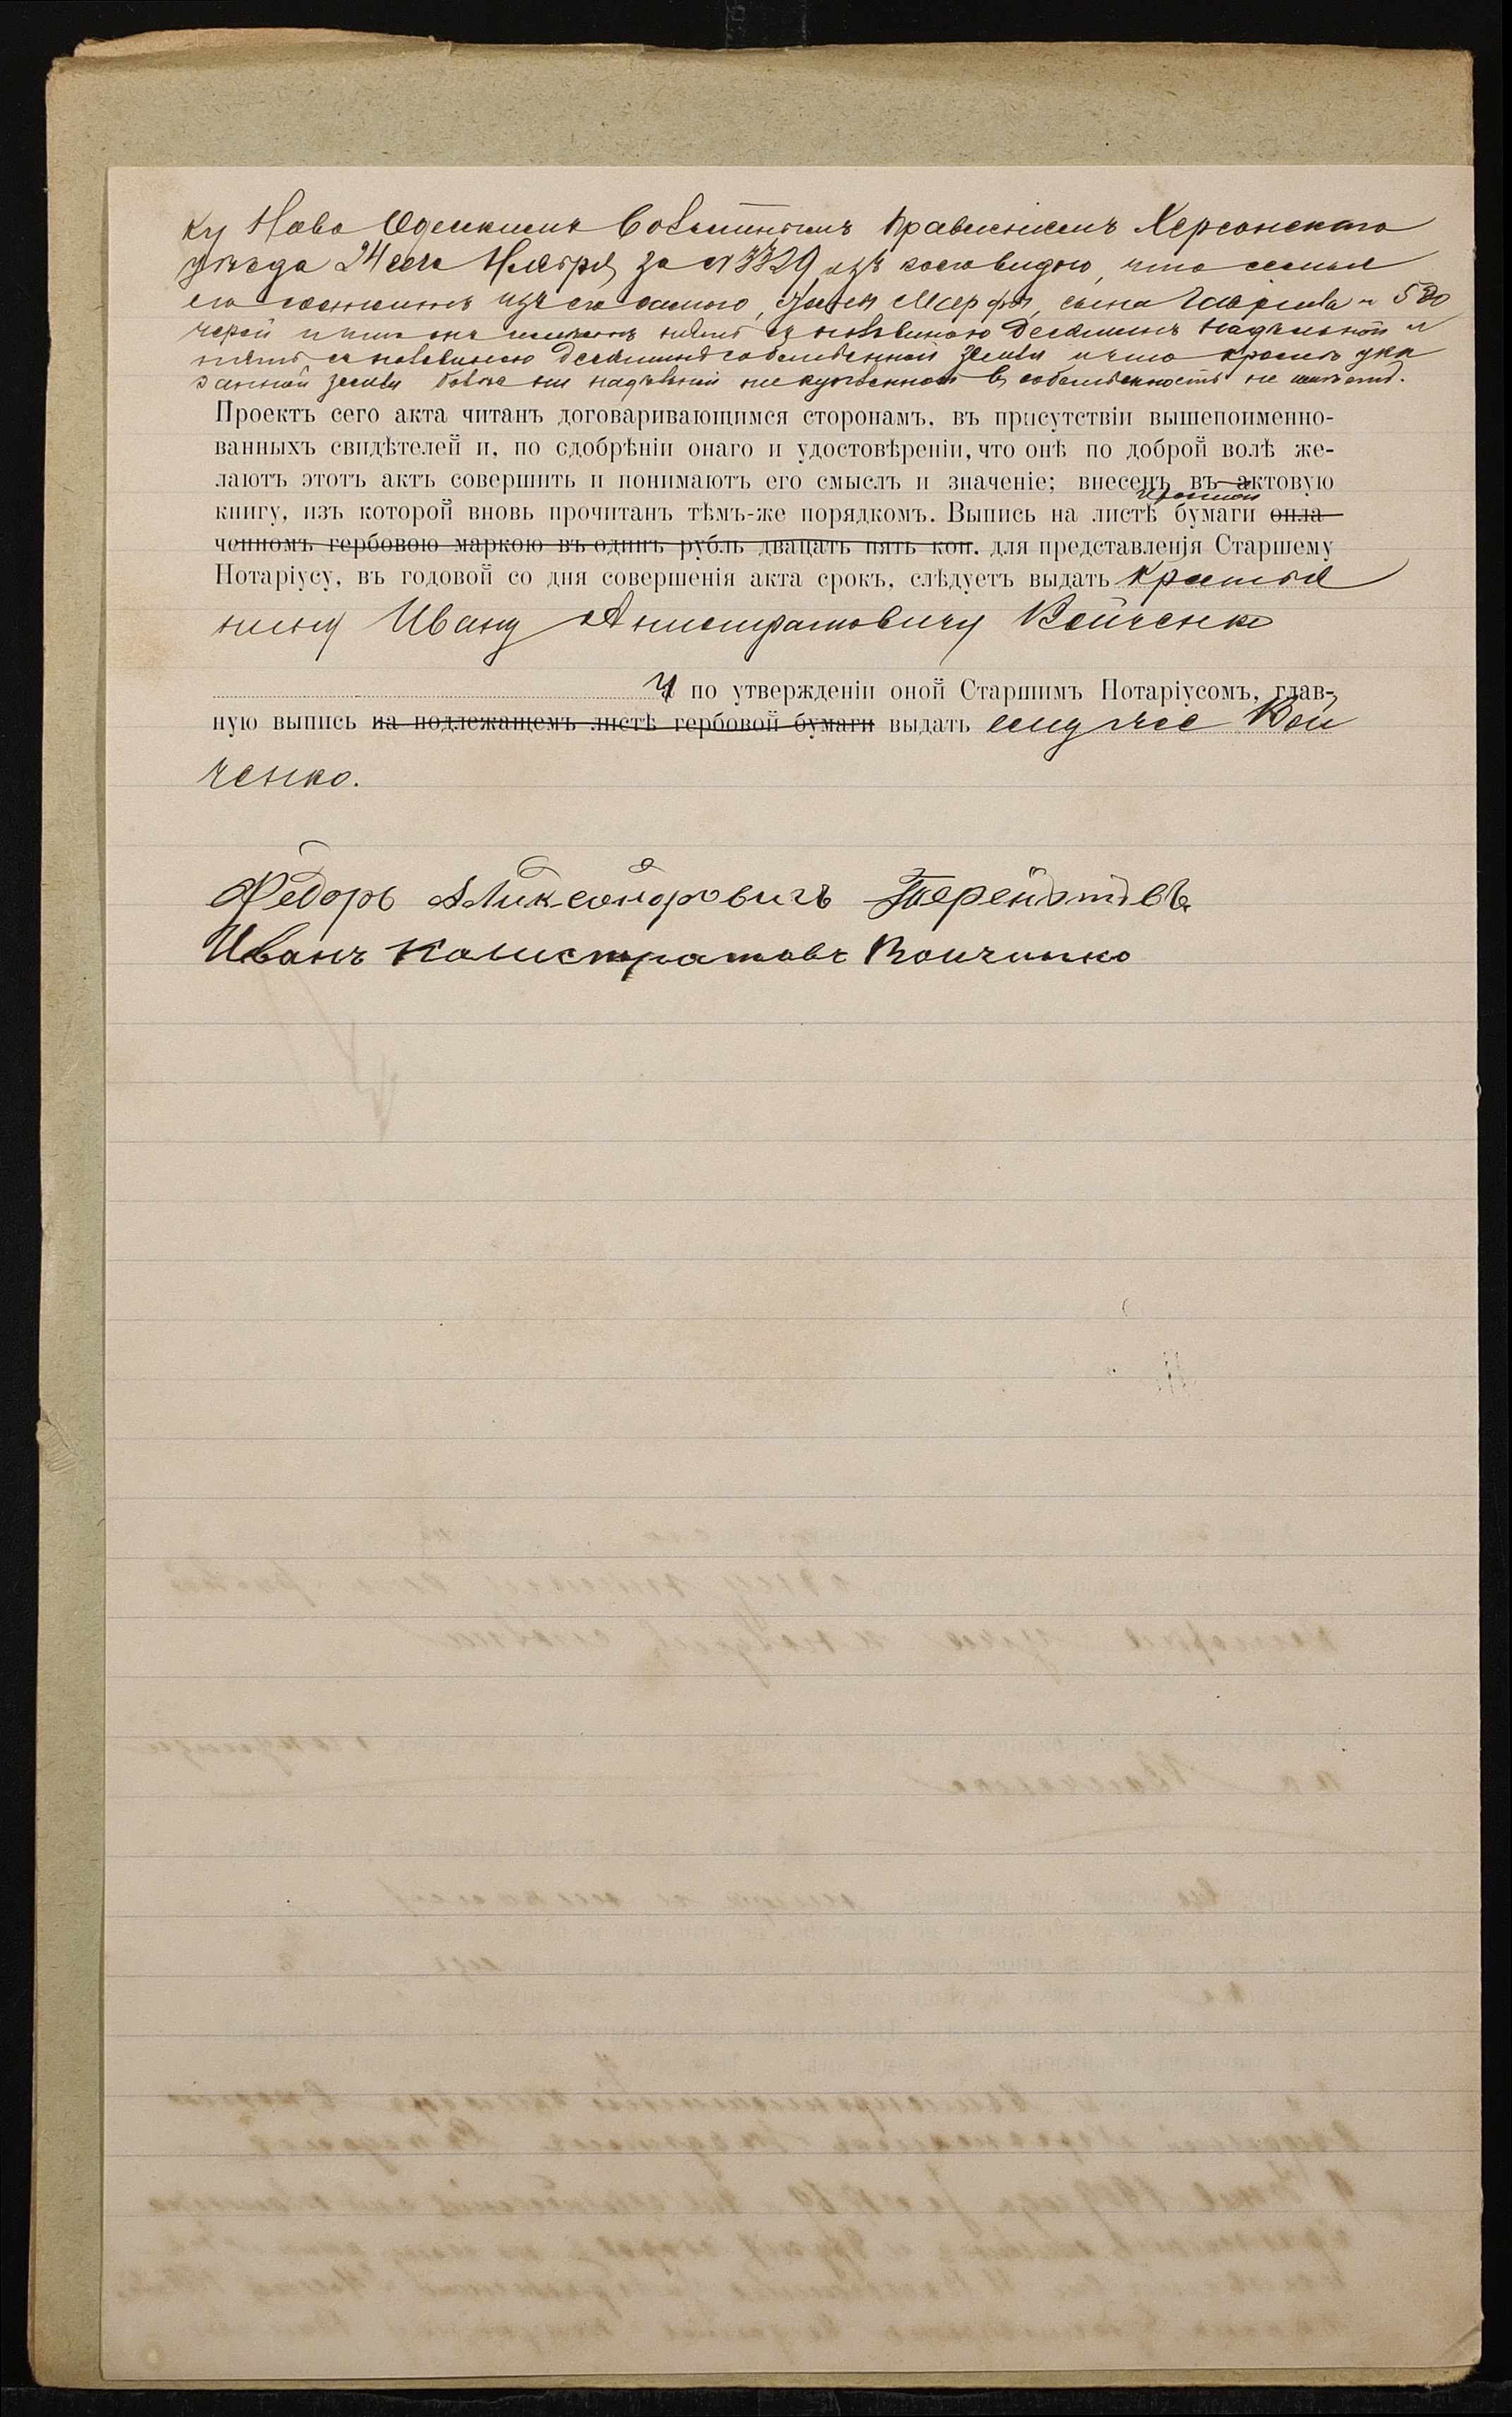 ку Ново Одесскимъ Волостнымъ Правленіемъ Херсонскаго
уѣзда 24 сего Ноября за №3329 изъ коего видно, что семья
его состоитъ изъ его самого, жены Марфы, сына Гавріила и 5 до
черей и что онъ имѣетъ пять съ половиною десятинъ надѣльной и
пять съ половиною десятинъ собственной земли и что кромѣ ука
занной земли болѣе ни надѣльной ни купленной въ собственность не имѣетъ.
Проектъ сего акта читанъ договаривающимся сторонамъ, въ присутствіи вышепоименно-
ванныхъ свидѣтелей и, по сдобрѣніи онаго и удостовѣреніи, что онѣ по доброй волѣ же-
лаютъ этотъ актъ совершить и понимаютъ его смыслъ и значеніе; внесенъ въ актовую
книгу, изъ которой вновь прочитанъ тѣмъ-же порядкомъ. Выпись на листѣ бумаги опла-
ченномъ гербовою маркою въ одинъ рубль двацать пять коп. для представленія Старшему
Нотаріусу, въ годовой со дня совершенія акта срокъ, слѣдуетъ выдать крестья
нину Ивану Анистратовичу Войченко
и по утвержденіи оной Старшимъ Нотаріусомъ, глав-
ную выпись на подлежащемъ листѣ гербовой бумаги выдать ему же Вой
ченко.
Федоръ Аликсондровичъ
Иванъ Калистратовъ Воичинко